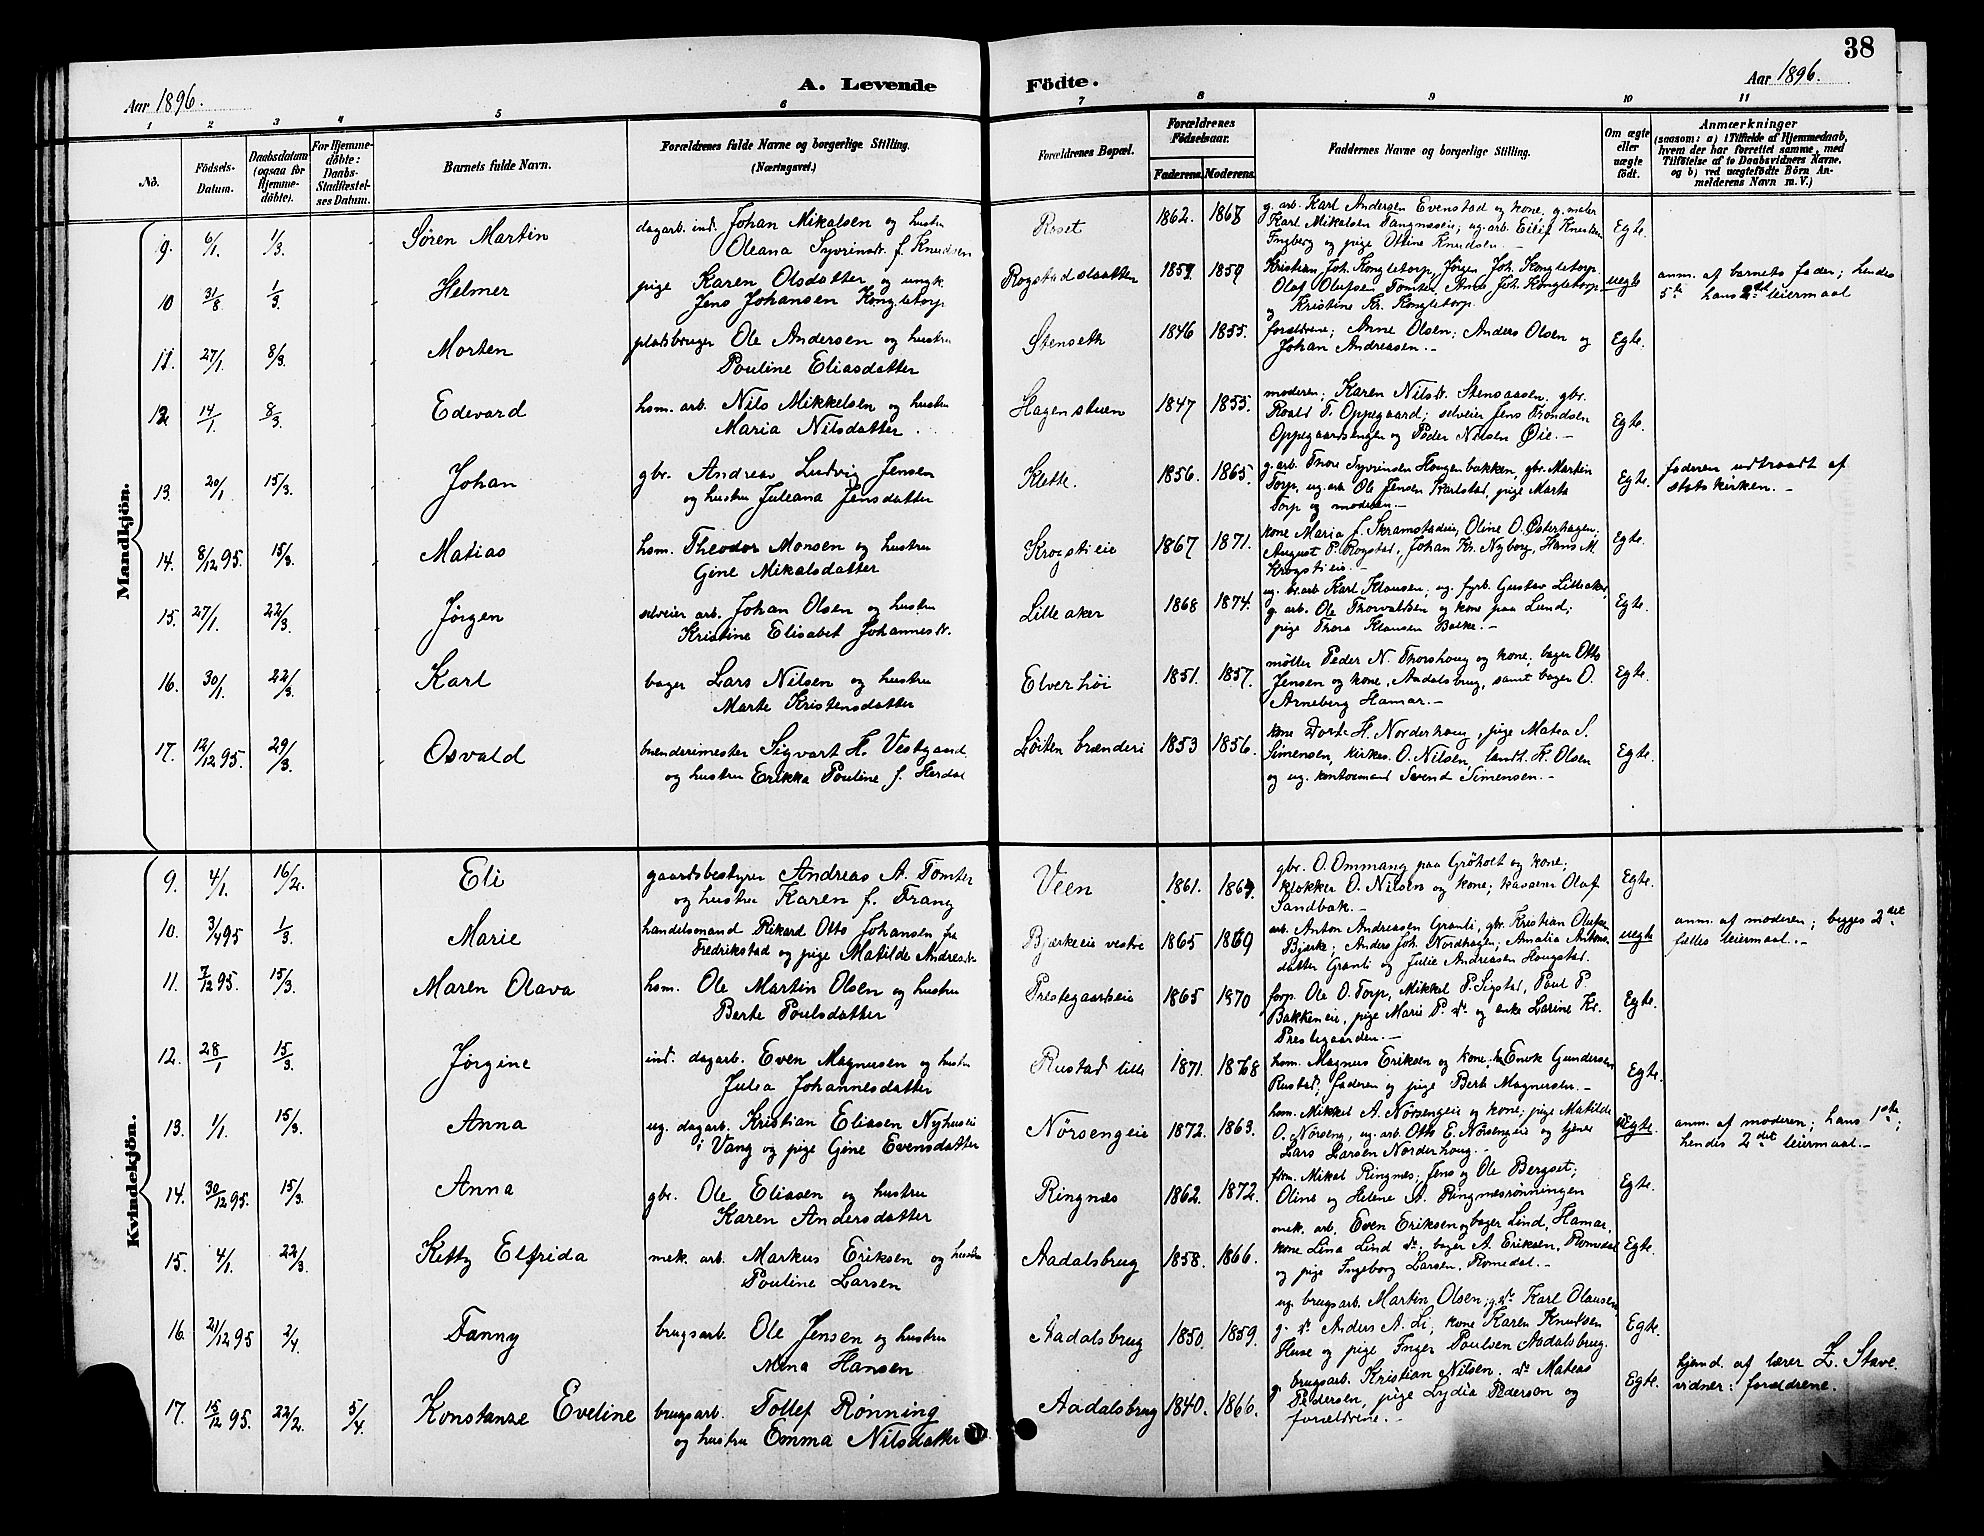 38
A. Levende Födte.
Aar 1896.
Aar 1896.
1 2 3 4 5 6 7 8 9 10 11
No.
Födsels-Datum.
Daabsdatum (ogsaa for Hjemme-döbte).
For Hjemme-döbte: Daabs-Stadfæstel-ses Datum.
Barnets fulde Navn.
Forældrenes fulde Navne og borgerlige Stilling.
(Næringsvei.)
Forældrenes Bopæl.
Forældrenes Födselsaar.
Faderens. Moderens.
Faddernes Navne og borgerlige Stilling.
Om ægte eller uægte födt.
Anmærkninger
(saasom: a) i Tilfælde af Hjemmedaab,
hvem der har forrettet samme, med
Tilföielse af to Daabsvidners Navne.
og b) ved uægtefödte Börn An-
melderens Navn m. V.)
Mandkjön.
9. 6/1. 1/3. Søren Martin dagarb. ind. Johan Mikalsen og hustru Roset 1862. 1868 g. arb. Karl Andersen Evenstad og kone, g. maler Egte.
Oleana Syverinsdt. f. Knudsen Karl Mikalsen Tangnæseie; ug. arb. Eilif Knutsen
Ingberg og pige Oline Knudsen.
10 31/8. 1/3. Helmer pige Karen Olsdatter og ungk. Rogstadslaatten 1859 1859 Kristian Joh. Kongletorp, Jørgen Joh. Kongletorp uegte anm. af barnets fader; hendes
Jens Johansen Kongletorp Olaf Olufsen Tomter, Anne Joh. Kongletorp 5te hans 2det leiermaal
og Kristine Kr. Kongletorp.
11. 27/1. 8/3. Morten pladsbruger Ole Andersen og hustru Stenseth 1846 1855. forældrene; Anne Olsen; Anders Olsen og Egte.
Pouline Eliasdatter Johan Andreasen.-
12 14/1 8/3. Edevard hsm. arb. Nils Mikkelsen og hustru Hagenstuen 1847 1855. moderen; Karen Nilsdt. Stensaasen, gbr. Egte.
Maria Nilsdatter. Roald T. Oppegaard; selveier Jens Trondsen
Oppegaardsengen og Peder Nilsen Øie.-
13. 20/1 15/3. Johan gbr. Andreas Ludvig Jensen Klette. 1856. 1865. g. arb. Thore Syverinsen Haugenbakken, gbr. Martin Egte. faderen udtraadt af
og hustru Juleana Jensdatter Torp, ug. arb. Ole Jensen Karlstad, pige Marta statskirken.-
Torp og moderen.-
14. 8/12 95. 15/3. Matias hsm. Theodor Monsen og hustru Krogstieie 1867 1871. kone Maria f. Skramstadeie, Oline O. Østerhagen. Egte.
Gine Mikalsdatter August P. Rogstad, Johan Kr. Nyborg, Hans M.
Krogstieie.-
15. 27/1. 22/3. Jørgen selveier arb. Johan Olsen og hustru Lilleaker 1868 1874. ug. br.arb Karl Klausen, ug. fyrb. Gustav Lilleaker, Egte.
Kristine Elisabet Johannesdt. g. arb. Ole Thorvaldsen og kone paa Lund;
pige Thora Klausen Balke.-
16. 30/1. 22/3. Karl bager Lars Nilsen og hustru Elverhøi 1851. 1857. møller Peder N. Thorshaug og kone; bager Otto Egte.
Marte Kristensdatter Jensen og kone, Aadalsbrug, samt bager O.
Arneberg Hamar.-
17. 12/12 95. 29/3. Osvald brænderimester Sigvart H. Vestgaard Løiten brænderi 1853 1856. kone Dorte H. Norderhaug, pige Matea S. Egte.
og hustru Erikka Pouline f. Herdal Simensen, kirkes. O. Nilsen, landh. K. Olsen
og ug. kontormand Svend Simensen.-
Kvindekjön.
9. 4/1. 16/2. Eli gaardsbestyrer Andreas A. Tomter Veen 1861. 1864. gbr. O. Ommang paa Grøholt og kone; Egte.
og hustru Karen f. Frang klokker O. Nilsen og kone; kasserer Olaf
Sandbak.-
10. 3/4 95 1/3. Marie handelsmand Rikard Otto Johansen fra Bjærkeeie vestre 1865 1869 arb. Anton Andreassen Granli, gbr. Kristian Olufsen uegte anm. af moderen; begges 2det
Fredrikstad og pige Matilde Andreasdt. Bjærke; Anders Joh. Nordhagen; Amalia Antons- fælles leiermaal.-
datter Granli og Julie Andreassen Haugstad.
11. 7/12 95. 15/3. Maren Olava hsm. Ole Martin Olsen og hustru Prestegaardseie 1865 1870 forp. Ole O. Torp, Mikkel P. Sigstad, Paul P. Egte.
Berte Poulsdatter Bakkeneie, pige Marie P. dt. og enke Larine Kr.
Prestegaarden.-
12. 28/1 15/3. Jørgine ind. dagarb. Even Magnussen og hustru Rustad lille 1871. 1868 hsm. Magnus Eriksen og kone. Enok Gundersen Egte.
Julia Johannesdatter Rustad; faderen og pige Berte Magnussen.-
13. 1/1. 15/3. Anna ug. dagarb. Kristian Eliasen Nyhuseie Nörsengeie 1872. 1863. hsm. Mikkel A. Nörsengeie og kone; pige Matilde uegte. anm. af moderen; hans 1ste;
i Vang og pige Gine Evensdatter O. Nørseng, ug. arb. Otto E. Nörsengeie og tjener hendes 2det leiermaal.-
Lars Larsen Norderhaug.-
14. 30/12 95. 15/3. Anna gbr. Ole Eliasen og hustru Ringnæs 1862. 1872. fhv. Mikal Ringnæs; Jens og Ole Bergset; Egte.
Karen Andersdatter Oline og Helene A. Ringnesrønningen
15. 4/1. 22/3. Ketty Elfrida mek. arb. Markus Eriksen og hustru Aadalsbrug 1858. 1866. mek. arb. Even Eriksen og bager Lind, Hamar, Egte.
Pouline Larsen kone Lina Lind do., bager A. Eriksen, Romedal
og pige Ingeborg Larsen, Romedal.-
16. 21/12 95 2/4. Fanny brugsarb. Ole Jensen og hustru Aadalsbrug 1850. 1859. ug. brugsarb. Martin Olsen; g. do. Karl Olausen, Egte.
Mina Hansen g. do. Anders A. Li; kone Karen Knudsen
Huse og pige Inger Poulsen Aadalsbrug.
17. 15/12 95. 22/2. 5/4. Konstanze Eveline brugsarb. Tollef Rønning Aadalsbrug 1840. 1866. g. brugsarb. Kristian Nilsen. do. Mateas Egte. hjemd. af lærer Z. Stave.
og hustru Emma Nilsdatter Pedersen, pige Lydia Pederson og vidner: forældrene.
forældrene.-